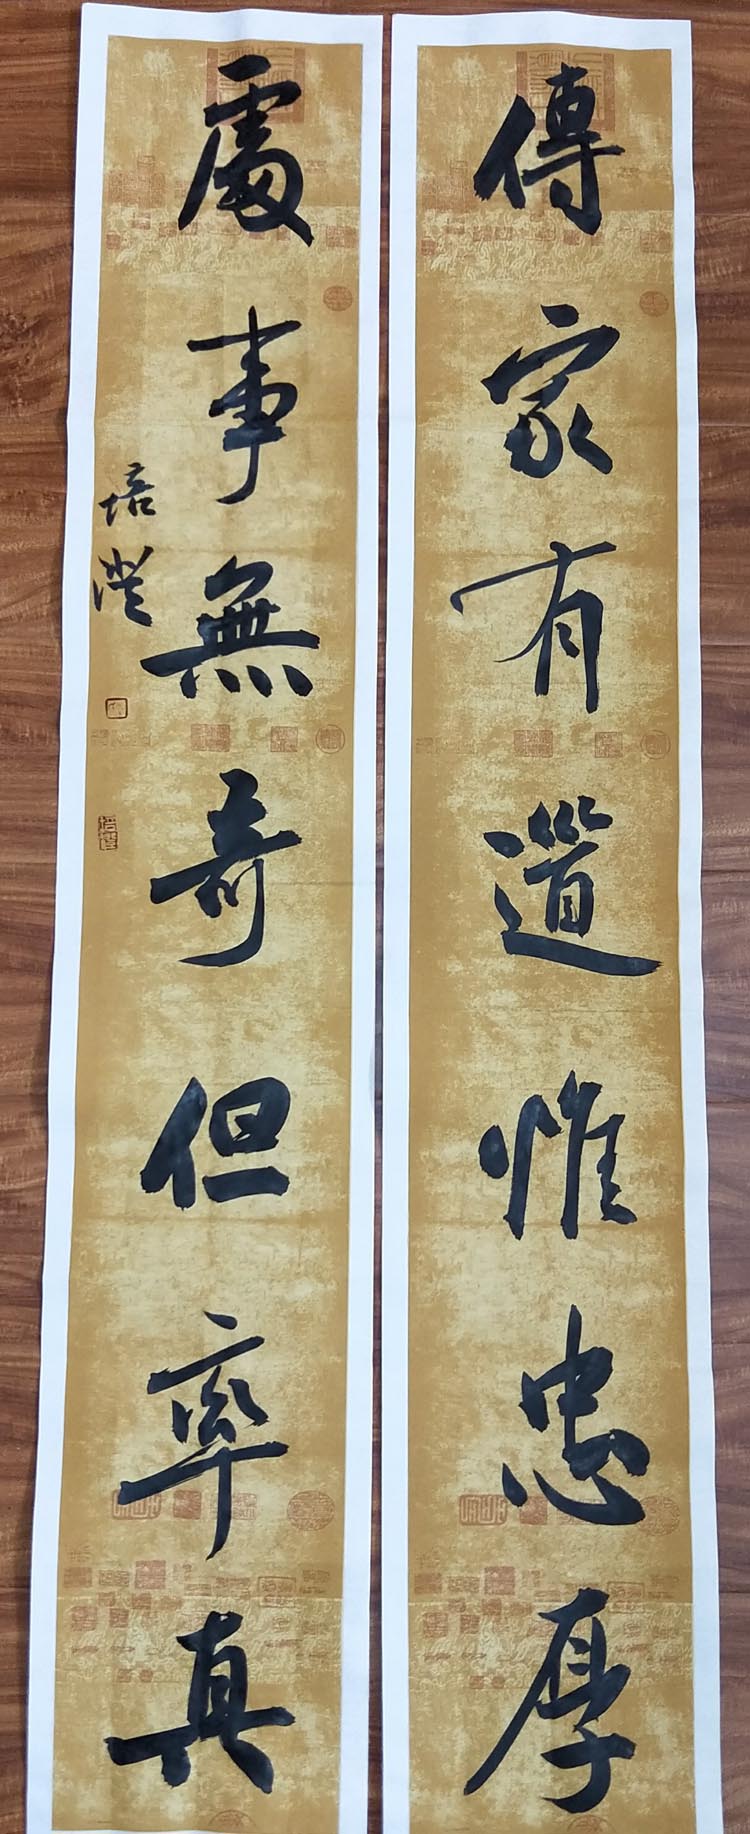 傳家有道惟忠厚
處事無奇但率真
培澄